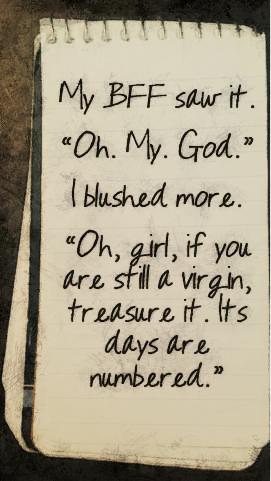 My BFF saw it.
“Oh. My. God.”
I blushed more.
“Oh, girl, if you
are still a virgin,
treasure it. Its
days are
numbered.”